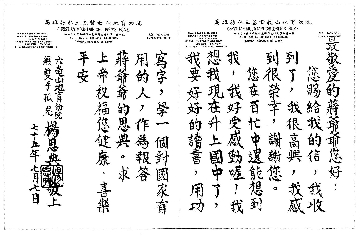 最敬愛的蔣爺爺您好：
您賜給我的信，我收
到了，我很高興，我感
到很榮幸，謝謝您。
您在百忙中還能想到
我，我好受感動喔！我
想我現在升上國中了，
我要好好的讀書，用功
寫字，學一個對國家有
用的人，作為報答
蔣爺爺的恩典。求
上帝祝福您健康、喜樂
平安
六龜山地育幼院
無雙手孤兒 楊恩典 敬上
七十五年七月七日